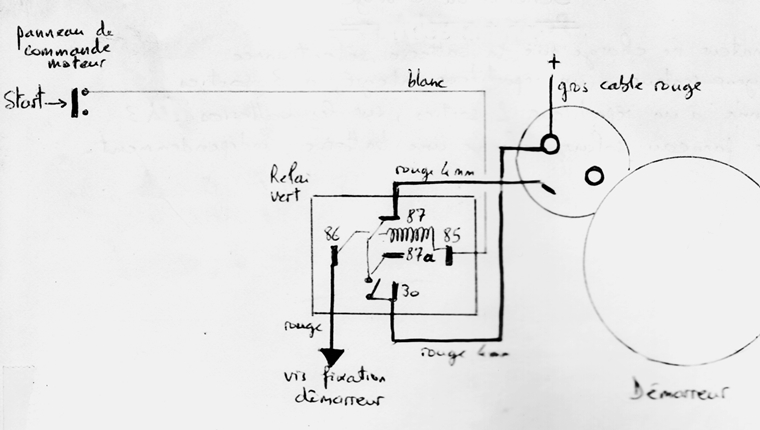 panneau de
commande
moteur
Start
blanc
+
gros cable rouge
rouge 4mm
Relai
vert
87
86
85
87a
30
rouge
rouge 4mm
vis fixation
démarreur
Démarreur